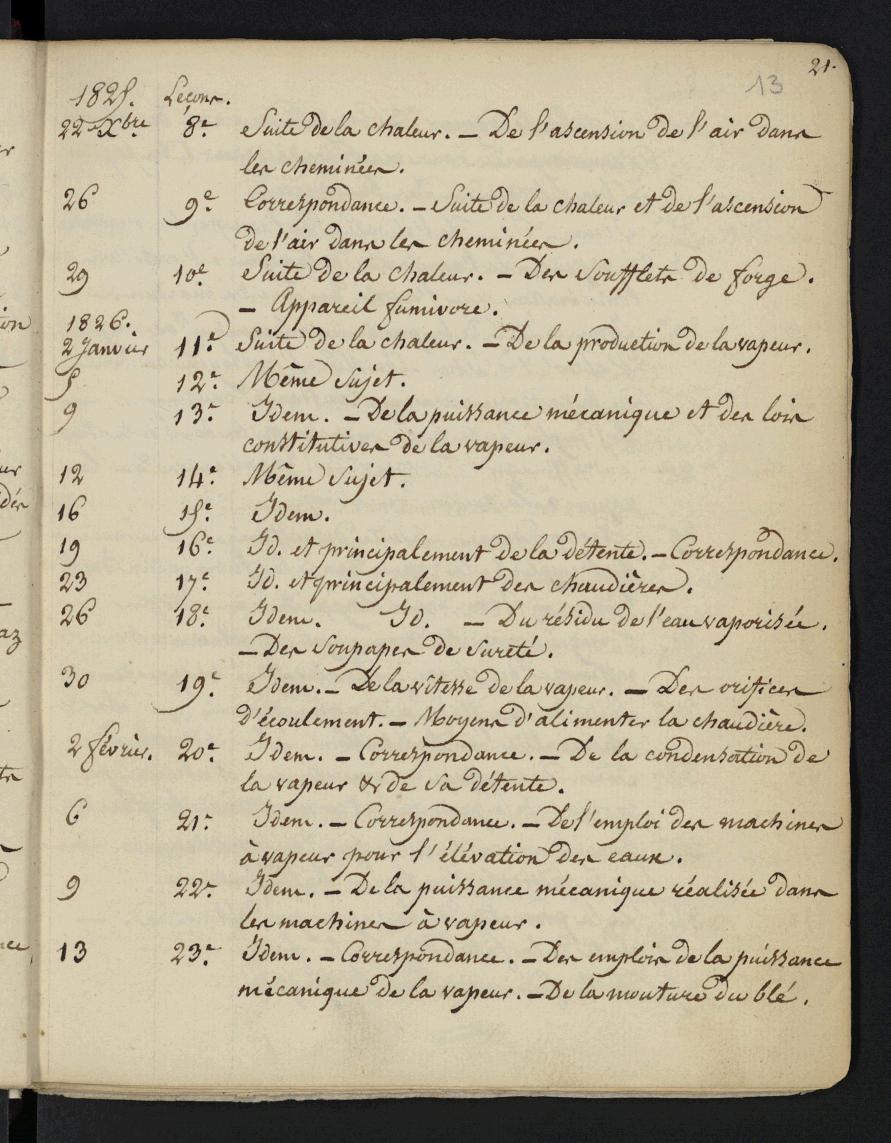 21.
13
1825. Leçons.
22 Xbre 8e Suite de la chaleur. – De l'ascension de l'air dans
les cheminées.
26 9e Correspondance. – Suite de la chaleur et de l'ascension
de l'air dans les cheminées.
29 10e Suite de la chaleur. – Des Soufflets de forge.
– Appareil fumivore.
1826.
2 Janvier 11e Suite de la chaleur. – De la production de la vapeur.
5 12e Même sujet.
9 13e Idem. – De la puissance mécanique et des lois
constitutives de la vapeur.
12 14e Même sujet.
16 15e Idem.
19 16e Id. et principalement de la détente. – Correspondance.
23 17e Id. et principalement des chaudières.
26 18e Idem. Id. – Du résidu de l'eau vaporisée.
– Des Soupapes de sureté.
30 19e Idem. – De la vitesse de la vapeur. – Des orifices
d'écoulement. – Moyens d'alimenter la chaudière.
2 février. 20e Idem. – Correspondance. – De la condensation de
la vapeur & de sa détente.
6 21e Idem. – Correspondance. – De l'emploi des machines
à vapeur pour l'élévation des eaux.
9 22e Idem. – De la puissance mécanique réalisée dans
les machines à vapeur.
13 23e Idem. – Correspondance. – Des emplois de la puissance
mécanique de la vapeur. – De la mouture du blé.